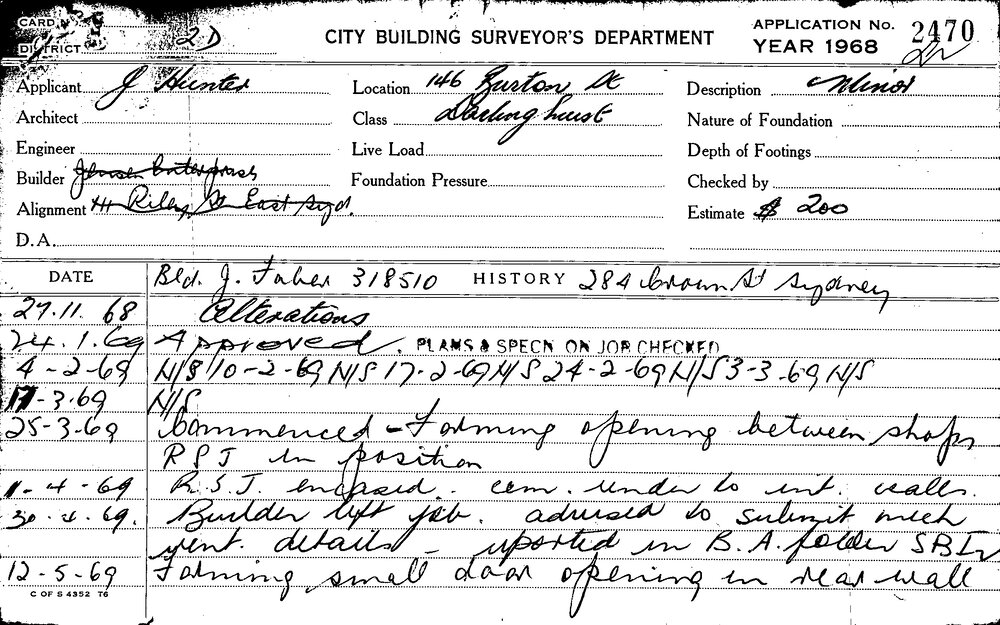 CARD
DISTRICT 2D
CITY BUILDING SURVEYOR'S DEPARTMENT
APPLICATION No. 2470
YEAR 1968
Applicant J Hunter
Location 146 Burton St
Description Minor
Architect
Class Darlinghurst
Nature of Foundation
Engineer
Live Load
Depth of Footings
Builder Jensen Enterprises
Foundation Pressure
Checked by
Alignment 44 Riley St East Syd.
Estimate $ 200
D.A.
DATE
Bld. J. Faher 318510 HISTORY 284 Crown St Sydney
27.11.68 Alterations
24.1.69 Approved. PLANS & SPECN ON JOB CHECKED
4-2-69 N/S 10-2-69 N/S 17-2-69 N/S 24-2-69 N/S 3-3-69 N/S
17-3.69 N/S
25-3-69 Commenced - Forming opening between shops
RSJ in position
1-4-69 R.S.J. encased. cem. render to int. walls.
30.4.69. Builder left job. advised to submit mech
vent. details - reported in B.A. folder SBI
12-5-69 Forming small door opening in rear wall
C OF S 4352 T6